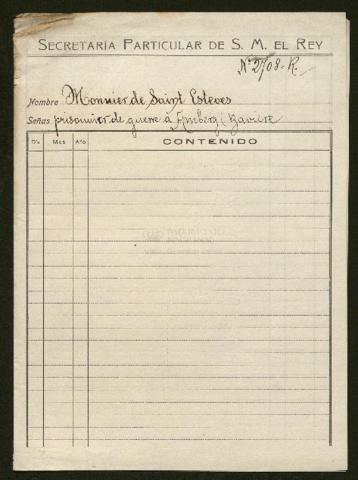 SECRETARÍA PARTICULAR DE S. M. EL REY
Nº 2708-R.
Nombre Monnier de Saint Esteves
Señas prisonnier de guerre à Amberg (Bavière
Día Mes Año CONTENIDO